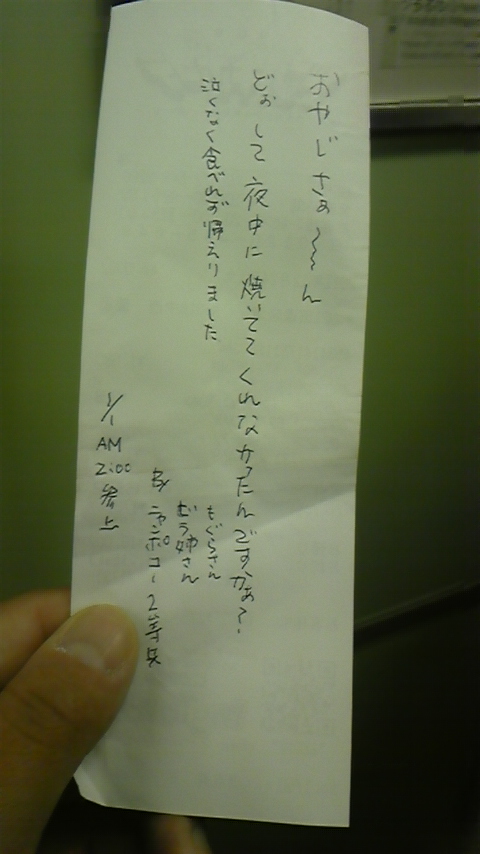 おやじさぁ〜〜ん
どぉして夜中に焼いててくれなかったんですかぁ〜
泣くなく食べれず帰えりました
もぐらさん
むう姉さん
By ニャポコー2等兵
1/1
AM
2:00
参上